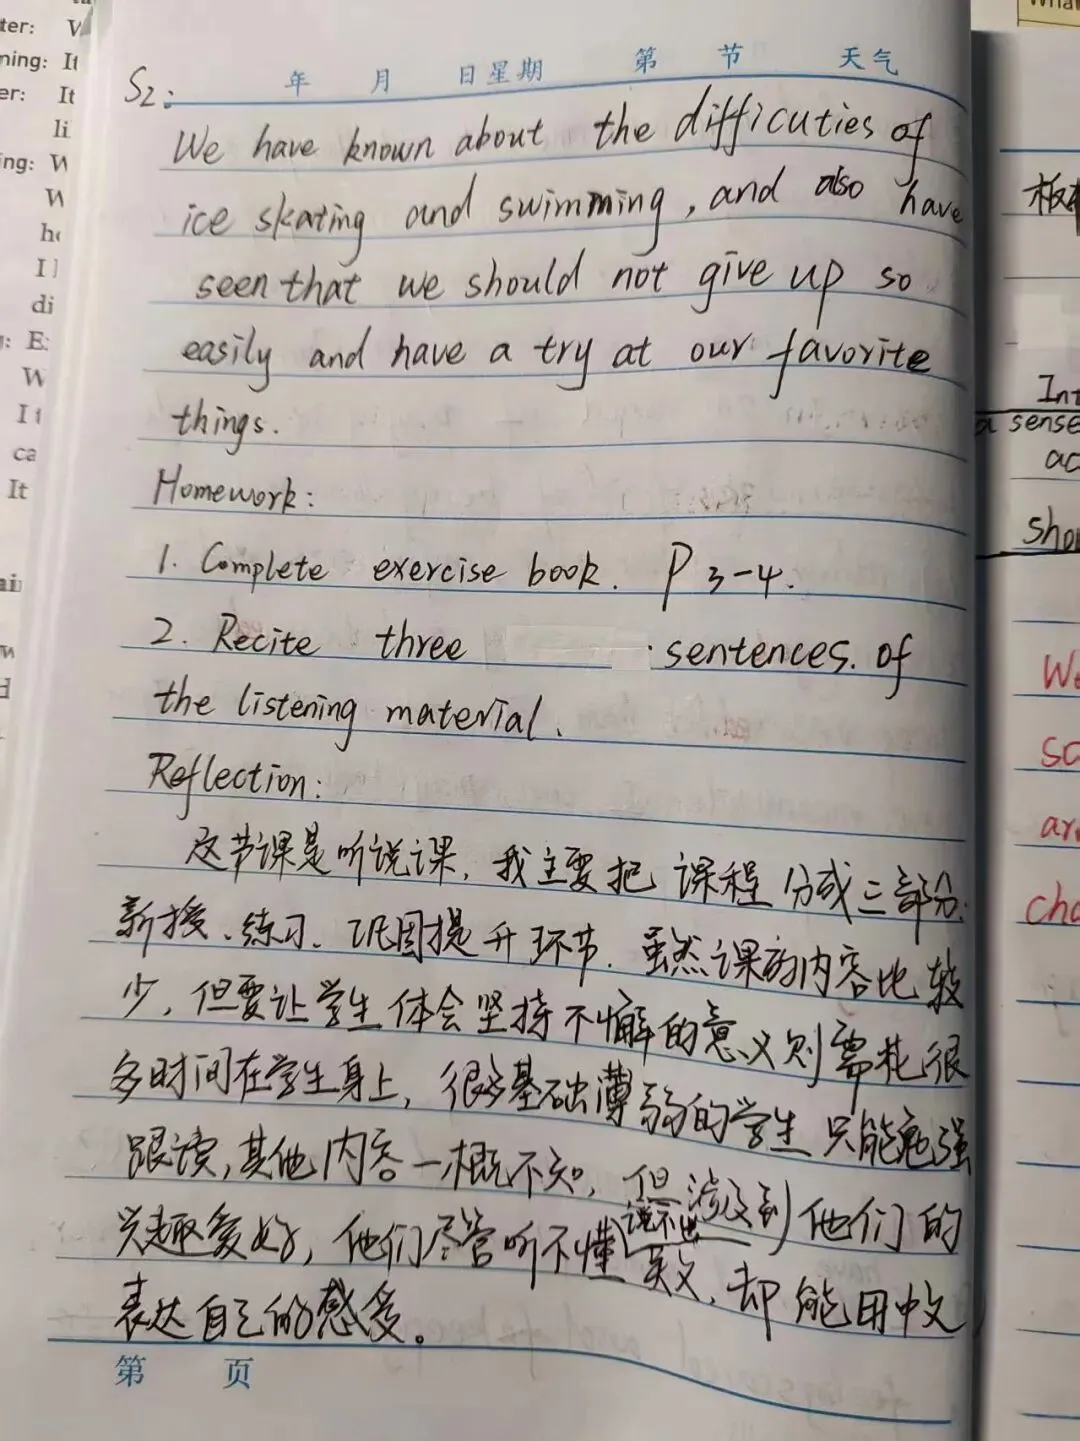 ter: V
ning: It
er: It
li
ing: W
W
I
di
W
ca
It
年 月 日星期 第 节 天气
S2:
We have known about the difficuties of
ice skating and swimming, and also have
seen that we should not give up so
easily and have a try at our favorite
things.
Homework:
1. Complete exercise book. P 3-4.
2. Recite three sentences. of
the listening material.
Reflection:
这节课是听说课,我主要把课程分成三部分:
新授、练习、巩固提升环节.虽然课的内容比较
少,但要让学生体会坚持不懈的意义则需花很
多时间在学生身上,很多基础薄弱的学生只能勉强
跟读,其他内容一概不知,但涉及到他们的
兴趣爱好,他们尽管听不懂说不出英文,却能用中文
表达自己的感受。
第 页
板
Int
a sense
ac
shou
We
so
ar
cha